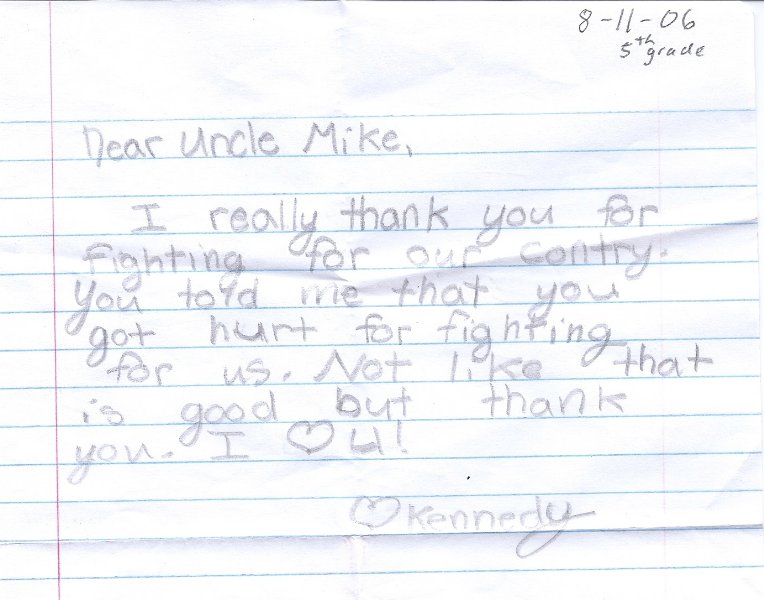 8-11-06
5th grade
Dear Uncle Mike,
I really thank you for
fighting for our contry.
You told me that you
got hurt for fighting
for us. Not like that
is good but thank
you. I ♡ u!
♡ Kennedy